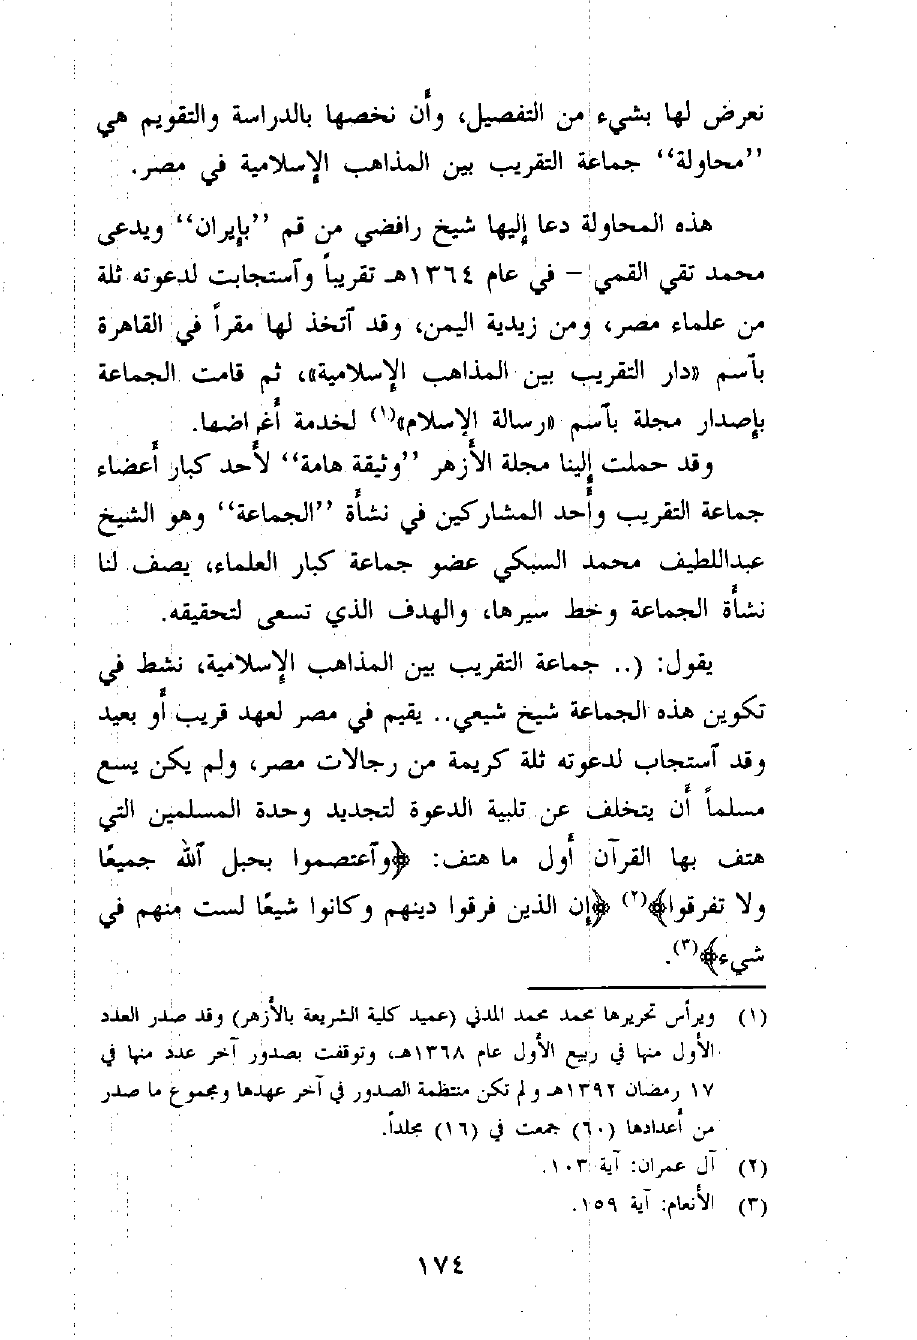 نعرض لها بشيء من التفصيل، وأن نخصها بالدراسة والتقويم هي
’’محاولة‘‘ جماعة التقريب بين المذاهب الإسلامية في مصر.
هذه المحاولة دعا إليها شيخ رافضي من قم ’’بإيران‘‘ ويدعى
محمد تقي القمي – في عام ١٣٦٤هـ تقريباً وآستجابت لدعوته ثلة
من علماء مصر، ومن زيدية اليمن، وقد آتخذ لها مقراً في القاهرة
بآسم «دار التقريب بين المذاهب الإسلامية»، ثم قامت الجماعة
بإصدار مجلة بآسم «رسالة الإسلام»(١) لخدمة أغراضها.
وقد حملت إلينا مجلة الأزهر ’’وثيقة هامة‘‘ لأحد كبار أعضاء
جماعة التقريب وأحد المشاركين في نشأة ’’الجماعة‘‘ وهو الشيخ
عبداللطيف محمد السبكي عضو جماعة كبار العلماء، يصف لنا
نشأة الجماعة وخط سيرها، والهدف الذي تسعى لتحقيقه.
يقول: (.. جماعة التقريب بين المذاهب الإسلامية، نشط في
تكوين هذه الجماعة شيخ شيعي.. يقيم في مصر لعهد قريب أو بعيد
وقد آستجاب لدعوته ثلة كريمة من رجالات مصر، ولم يكن يسع
مسلماً أن يتخلف عن تلبية الدعوة لتجديد وحدة المسلمين التي
هتف بها القرآن أول ما هتف: ﴿وآعتصموا بحبل آلله جميعًا
ولا تفرقوا﴾(٢) ﴿إن الذين فرقوا دينهم وكانوا شيعًا لست منهم في
شيء﴾(٣).
(١) ويرأس تحريرها محمد محمد المدني (عميد كلية الشريعة بالأزهر) وقد صدر العدد
الأول منها في ربيع الأول عام ١٣٦٨هـ، وتوقفت بصدور آخر عدد منها في
١٧ رمضان ١٣٩٢هـ ولم تكن منتظمة الصدور في آخر عهدها ومجموع ما صدر
من أعدادها (٦٠) جمعت في (١٦) مجلداً.
(٢) آل عمران: آية ١٠٣.
(٣) الأنعام: آية ١٥٩.
١٧٤